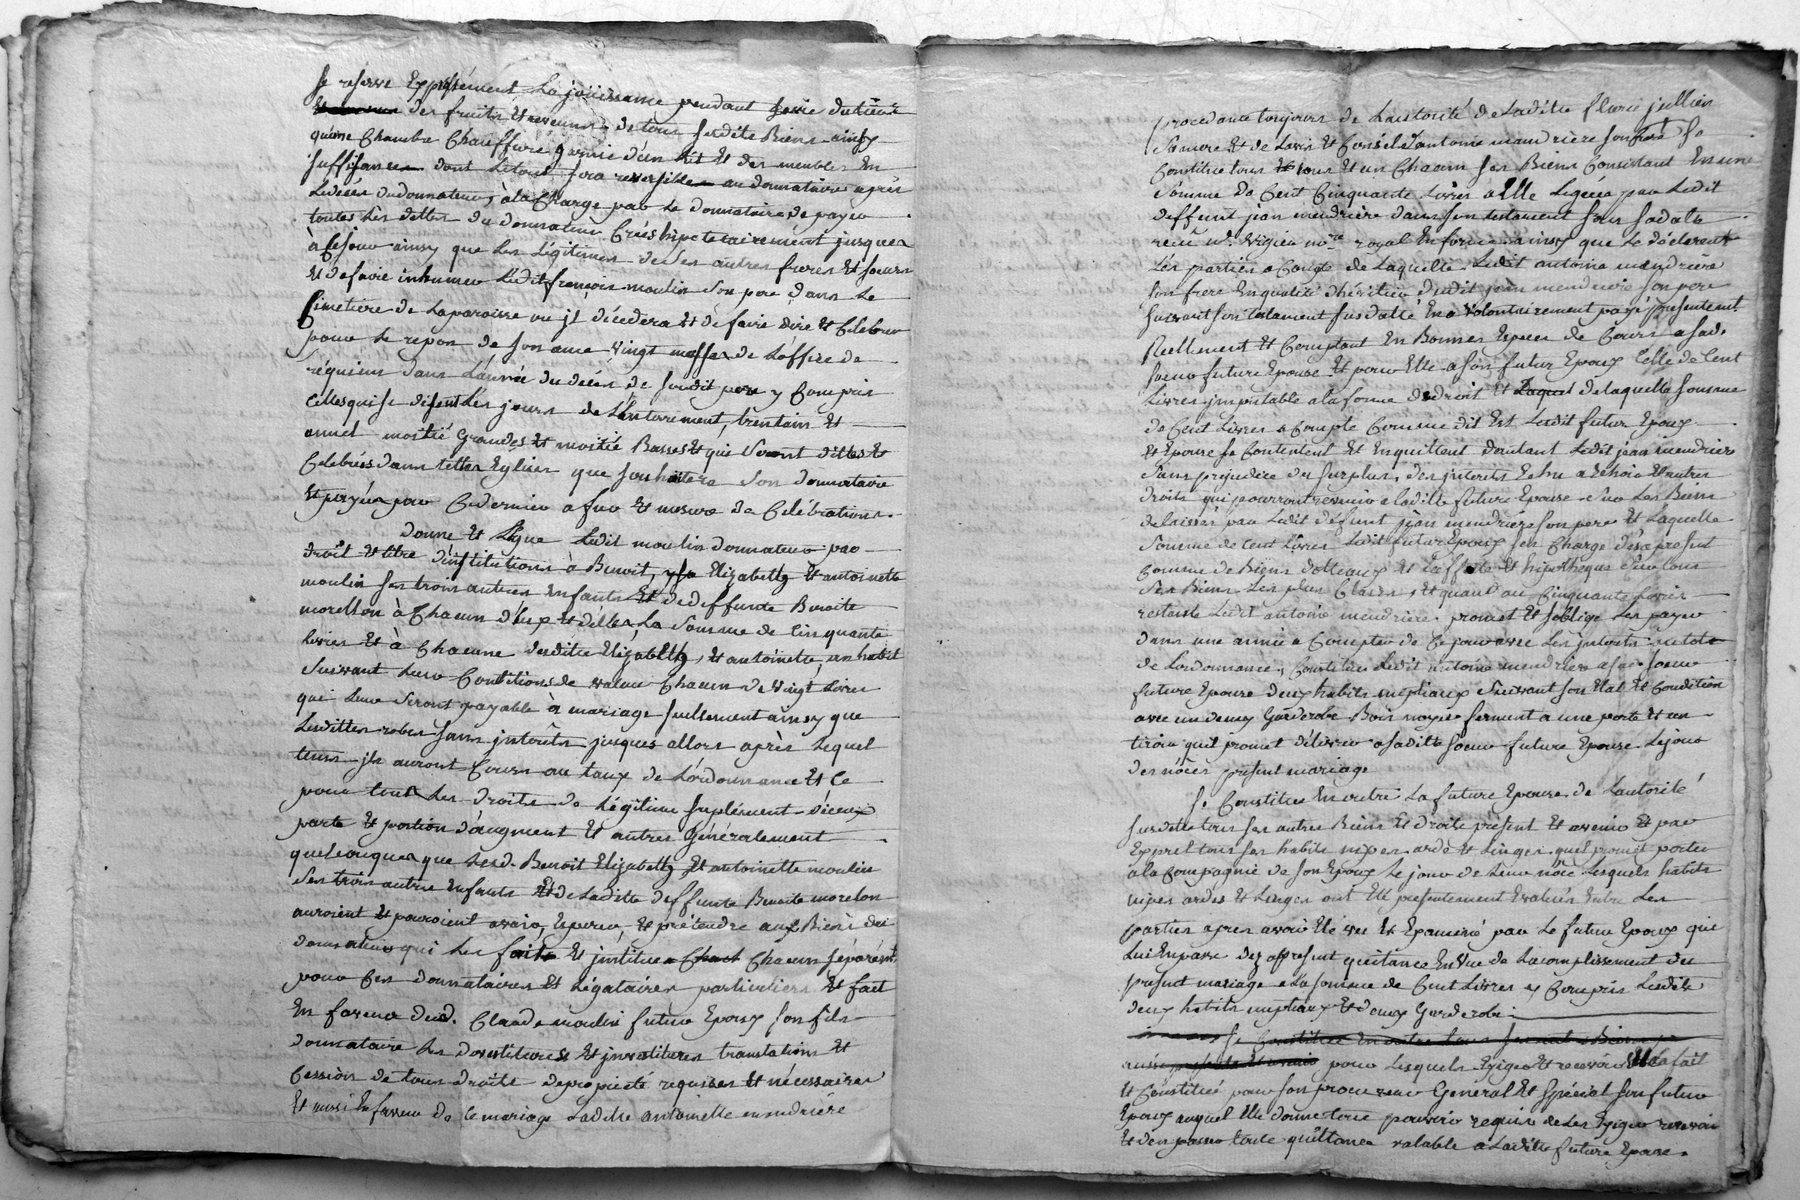 se reserve Expressément La joüissance pendant sa vie
des fruits Et revenus de tous susdits Biens ainsy
qu'une Chambre Chauffure garnie d'un Lit Et des meubles En
suffisance dont Letout sera reversible au donnataire après
Ledécés dudonnateur, àla Charge par Le donnataire de payer
toutes Les dettes du donnateur Créés hipotecairement jusques
à Cejour ainsy que Les Légitimes de ses autres freres Et soeurs
Et defaire inhumer Ledit françois moulin son pere dans Le
Cimetiere de Laparoisse ou jl décédera Et de faire dire Et Célébrer
pour Le repos de son ame vingt messes de L'office de
réquiem dans L'année du décés de sondit pere y Compris
Celles qui se disent Les jours de L'Enterrement, trentain Et
annuel moitié Grandes Et moitié Basses Et qui seront dittes Et
Célébrées dans telles Eglises que souhaitera son donnataire
Et payées par Cedernier a fur Et mesure de Célébrations.
donne Et Légue Ledit moulin donnateur par
droit Et titre d'institutions à Benoit, Elizabeth Et antoinette
moulin ses trois autres Enfants Et dedeffunte Benoite
morellon à Chacun d'Eux Et d'elles La somme de Cinquante
Livres Et à Chacune desdites Elizabeth, Et antoinette, un habit
suivant Leur Conditions de valeur Chacun de vingt Livres
qui Leur seront payable à mariage seullement ainsy que
Lesdittes robes sans jnterêts jusques allors après Lequel
tems jls auront Cours au taux de L'ordonnance Et Ce
pour tout Les droits de Légitime suplément d'iceux
parts Et portion d'augment Et autres Généralement
quelconques que Lesd. Benoit Elizabeth Et antoinette moulin
ses trois autres Enfants Et de Ladite deffunte Benoite morelon
auroient Et pouroient avoir, Esperer, Et prétendre aux Biens du
donnateur qui Les fait Et jnstitue Chacun séparémt
pour Ces donnataires Et Légataires particuliers Et fait
En faveur dud. Claude moulin futur Epoux son fils
donnataire Les dévestitures Et jnvestitures translations Et
Cession de tous droits depropriété requises Et nécessaires
Et aussi En faveur de Ce mariage Ladite antoinette mendrière
procedante toujours de Lautorité de Laditte fleurie jullien
sa mere Et de Lavis Et Conseil d'antoine mendrière son frere se
Constitue tous Et un Chacun ses Biens Consistant En une
somme de Cent Cinquante Livres a Elle Leguée par Ledit
deffunt jean mendrière dans son testament sous sa date
reçû Me. Vigier nore. royal En forme ainsy que Le déclarent
Les parties a Compte de Laquelle Ledit antoine mendrière
son frere En qualité d'héritier dudit jean mendriere son pere
suivant son testament susdatté En a volontairement payé présentement
Réellement Et Comptant En Bonnes Espèces de Cours a sad.
soeur future Epouse Et pour Elle a son futur Epoux Celle de Cent
Livres jmputable a la forme du droit Et delaquelle somme
de Cent Livres a Compte Comme dit Est Ledit futur Epoux
Et Epouse se Contentent Et En quittent dautant Ledit jean mendriere
sans préjudice du surplus, des jnterets Echu a Echoir Et autres
droits qui pourront revenir a laditte future Epouse sur Les Biens
delaissés par Ledit défunt jean mendrière son pere Et Laquelle
somme de Cent Livres Ledit futur Epoux sen Charge dés apresent
Comme de Biens dotteaux Et L'affecte Et hipothèque sur tous
ses Biens Les plus Clairs, Et quand au Cinquante Livres
restante Ledit antoine mendrière promet Et soblige Les payer
dans une année a Compter de Cejour avec Les jnterets au taux
de Lordonnance, Constitue Ledit antoine mendrière a sad. soeur
future Epouse deux habits nuptiaux suivant son Etat Et Condition
avec une demy Garderobe Bois noyer fermant a une porte Et un
tiroir quil promet délivrer a saditte soeur future Epouse Lejour
des nôces présent mariage
se Constitue En outre La future Epouse de Lautorité
susdite tous ses autres Biens Et droits présent Et avenir Et par
Exprès tous ses habits nipes arde Et Linges quel promet porter
a la Compagnie de son Epoux Le jour de Leur nôce Lesquels habits
nipes ardes Et Linges ont Eté présentement Evalués Entre Les
parties apres avoir Eté veu Et Examiné par Le futur Epoux qui
Lui En passe dez apresent quittance En Vue de Lacomplissement du
présent mariage a La somme de Cent Livres y Compris Lesdits
deux habits nuptiaux Et demy Garderobe
se Constitue En outre tous
pour Lesquels Exiger Et recevoir Elle a fait
Et Constitué pour son procureur Général Et spécial son futur
Epoux auquel Elle donne tout pouvoir requis de Les Exiger recevoir
Et d'en passer toute quittance valable a Laditte future Epouse.